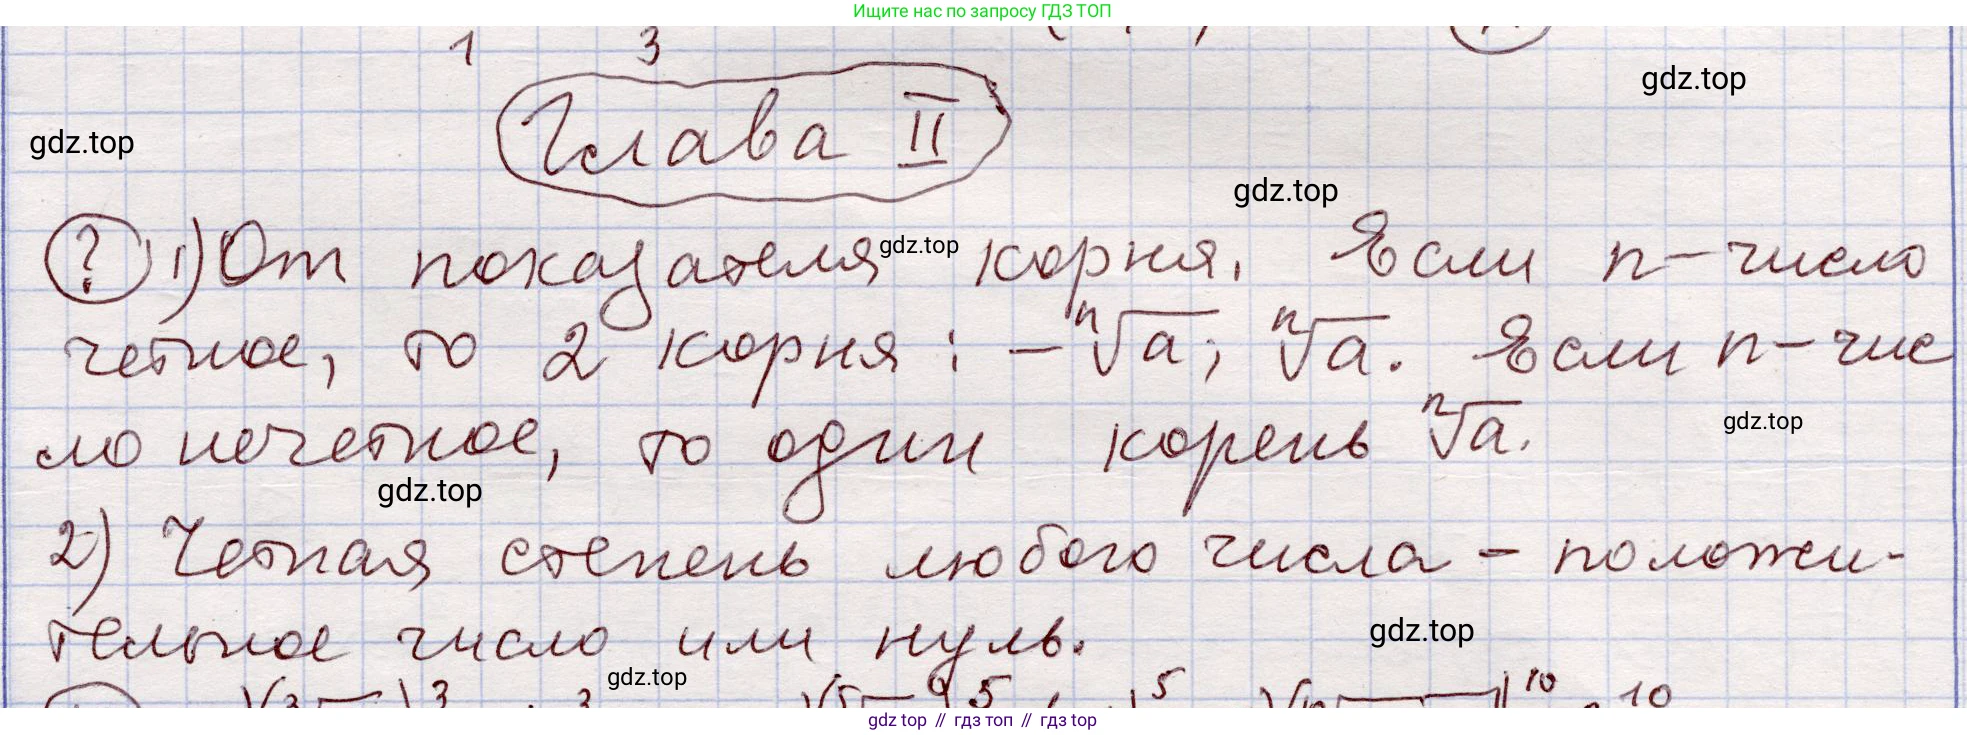 Ищите нас по запросу ГДЗ ТОП
1 3
gdz.top
Глава II
gdz.top
gdz.top
? 1) От показателя корня. Если n - число
gdz.top
четное, то 2 корня: -ⁿ√a; ⁿ√a. Если n - чис
ло нечетное, то один корень ⁿ√a.
gdz.top
gdz.top
2) Четная степень любого числа - положи-
тельное число или нуль.
gdz.top
gdz.top
gdz top // гдз топ // гдз top